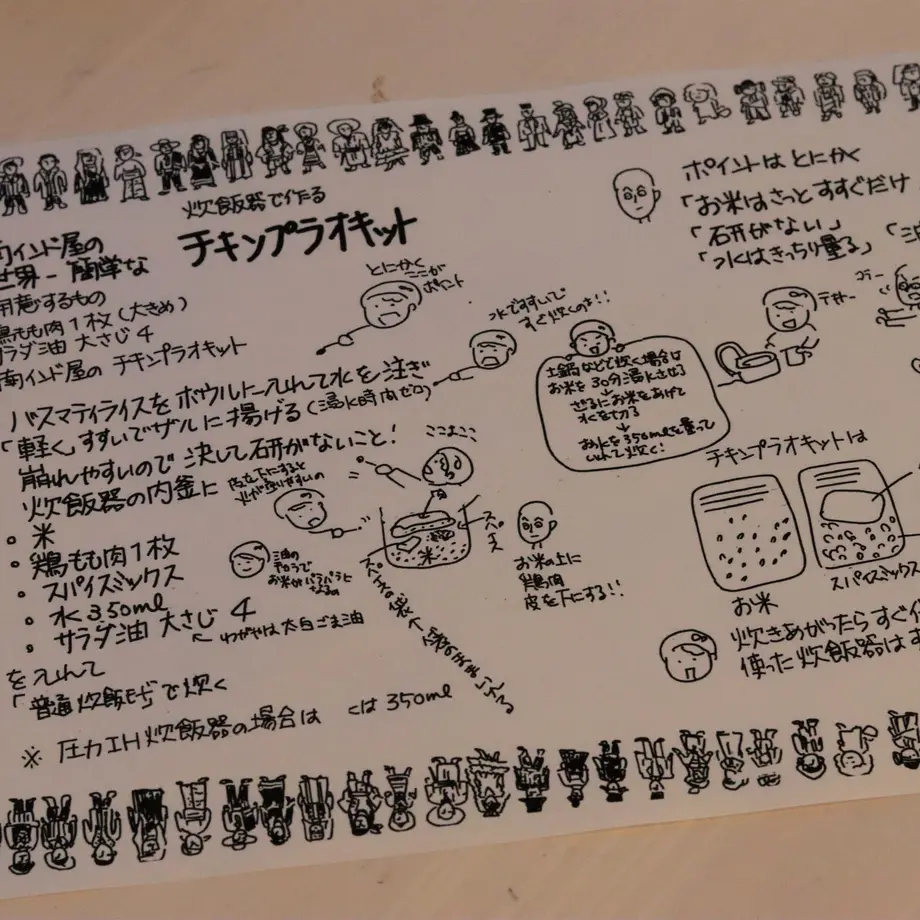 炊飯器で作る
チキンプラオキット
南インド屋の
世界一簡単な
用意するもの
鶏もも肉1枚(大きめ)
サラダ油 大さじ4
南インド屋の チキンプラオキット
とにかく
ここが
ポイント
水ですすいで
すぐ炊くのよ!!
バスマティライスをボウルに入れて水を注ぎ
「軽く」すすいでザルに揚げる(浸水時間ゼロ)
崩れやすいので決して研がないこと!
炊飯器の内釜に
・米
・鶏もも肉1枚
・スパイスミックス
・水350ml
・サラダ油 大さじ4
← わがやは太白ごま油
を入れて
「普通炊飯モード」で炊く
※ 圧力IH炊飯器の場合は
は350ml
皮を下にすると
油の
お米がパラパラに
なるの
ここよここ
スパイス
米
お米の上に
鶏肉
皮を下にする!!
土鍋などで炊く場合は
お米を30分浸水させる
↓
ざるにお米をあげて
水を切る
↓
お水を350ml量って
いれて炊く!
ポイントはとにかく
「お米はさっとすすぐだけ
「研がない」
「水はきっちり量る」
チキンプラオキットは
お米
スパイスミックス
炊きあがったらすぐ
使った炊飯器はす